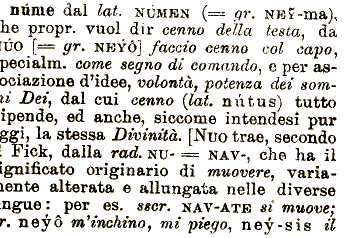 núme dal lat. NÙMEN (= gr. NEỸ-ma),
he propr. vuol dir cenno della testa, da
NÙO [= gr. NEỲÔ] faccio cenno col capo,
pecialm. come segno di comando, e per as-
ociazione d'idee, volontà, potenza dei som-
ni Dei, dal cui cenno (lat. nútus) tutto
ipende, ed anche, siccome intendesi pur
ggi, la stessa Divinità. [NUO trae, secondo
l Fick, dalla rad. NU- = NAV-, che ha il
ignificato originario di muovere, varia-
nente alterata e allungata nelle diverse
ngue: per es. sscr. NAV-ATE si muove;
r. neýô m'inchino, mi piego, neý-sis il